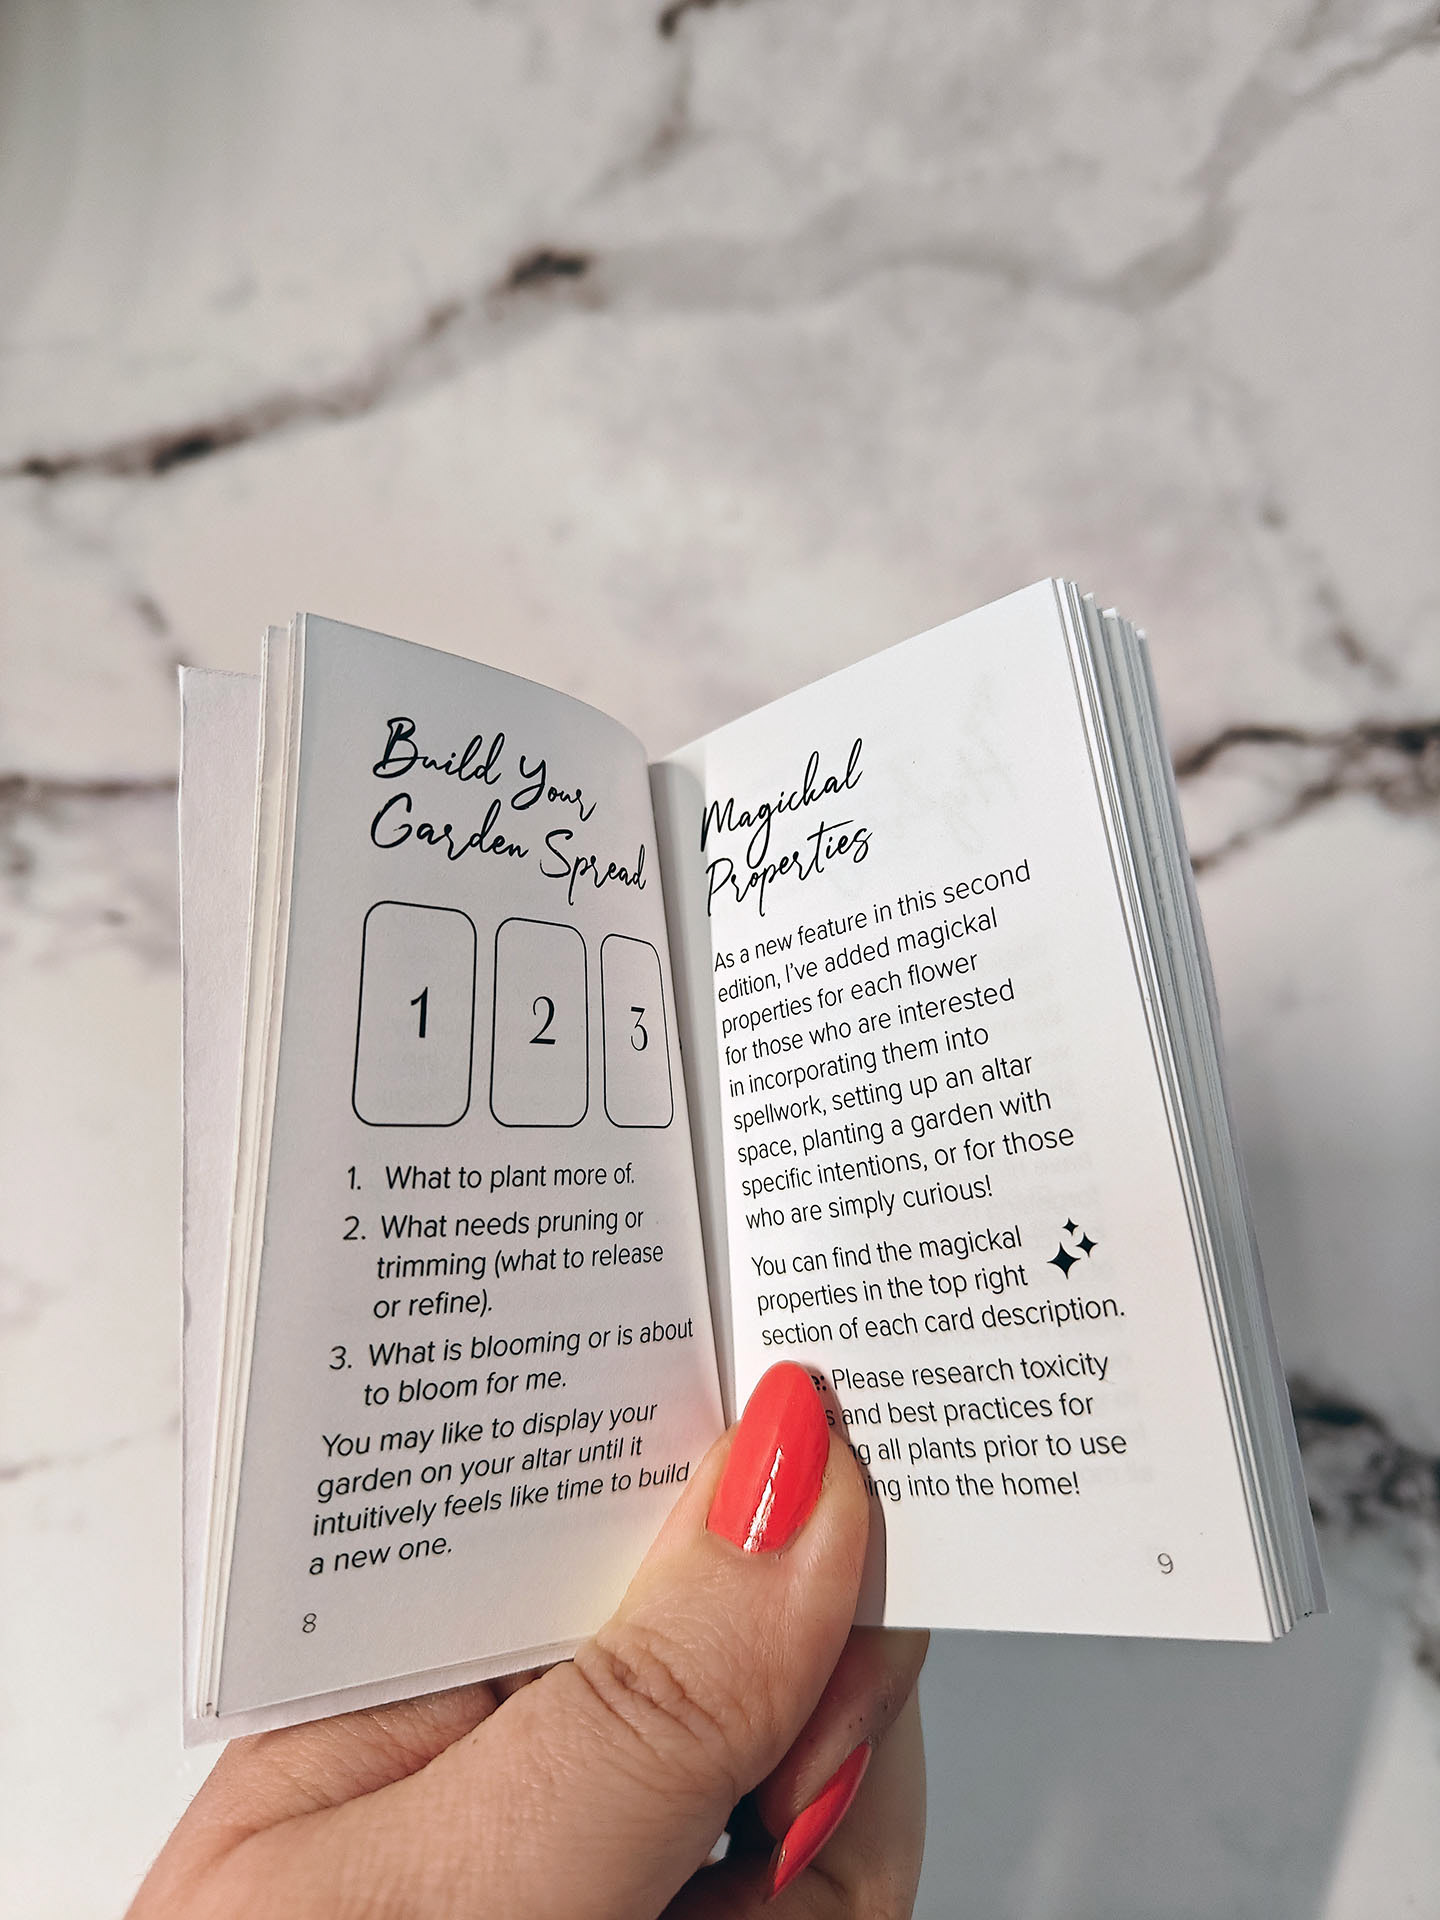 Build Your
Garden Spread
1 2 3
1. What to plant more of.
2. What needs pruning or
trimming (what to release
or refine).
3. What is blooming or is about
to bloom for me.
You may like to display your
garden on your altar until it
intuitively feels like time to build
a new one.
8
Magickal
Properties
As a new feature in this second
edition, I've added magickal
properties for each flower
for those who are interested
in incorporating them into
spellwork, setting up an altar
space, planting a garden with
specific intentions, or for those
who are simply curious!
You can find the magickal
properties in the top right
section of each card description.
Please research toxicity
and best practices for
all plants prior to use
into the home!
9